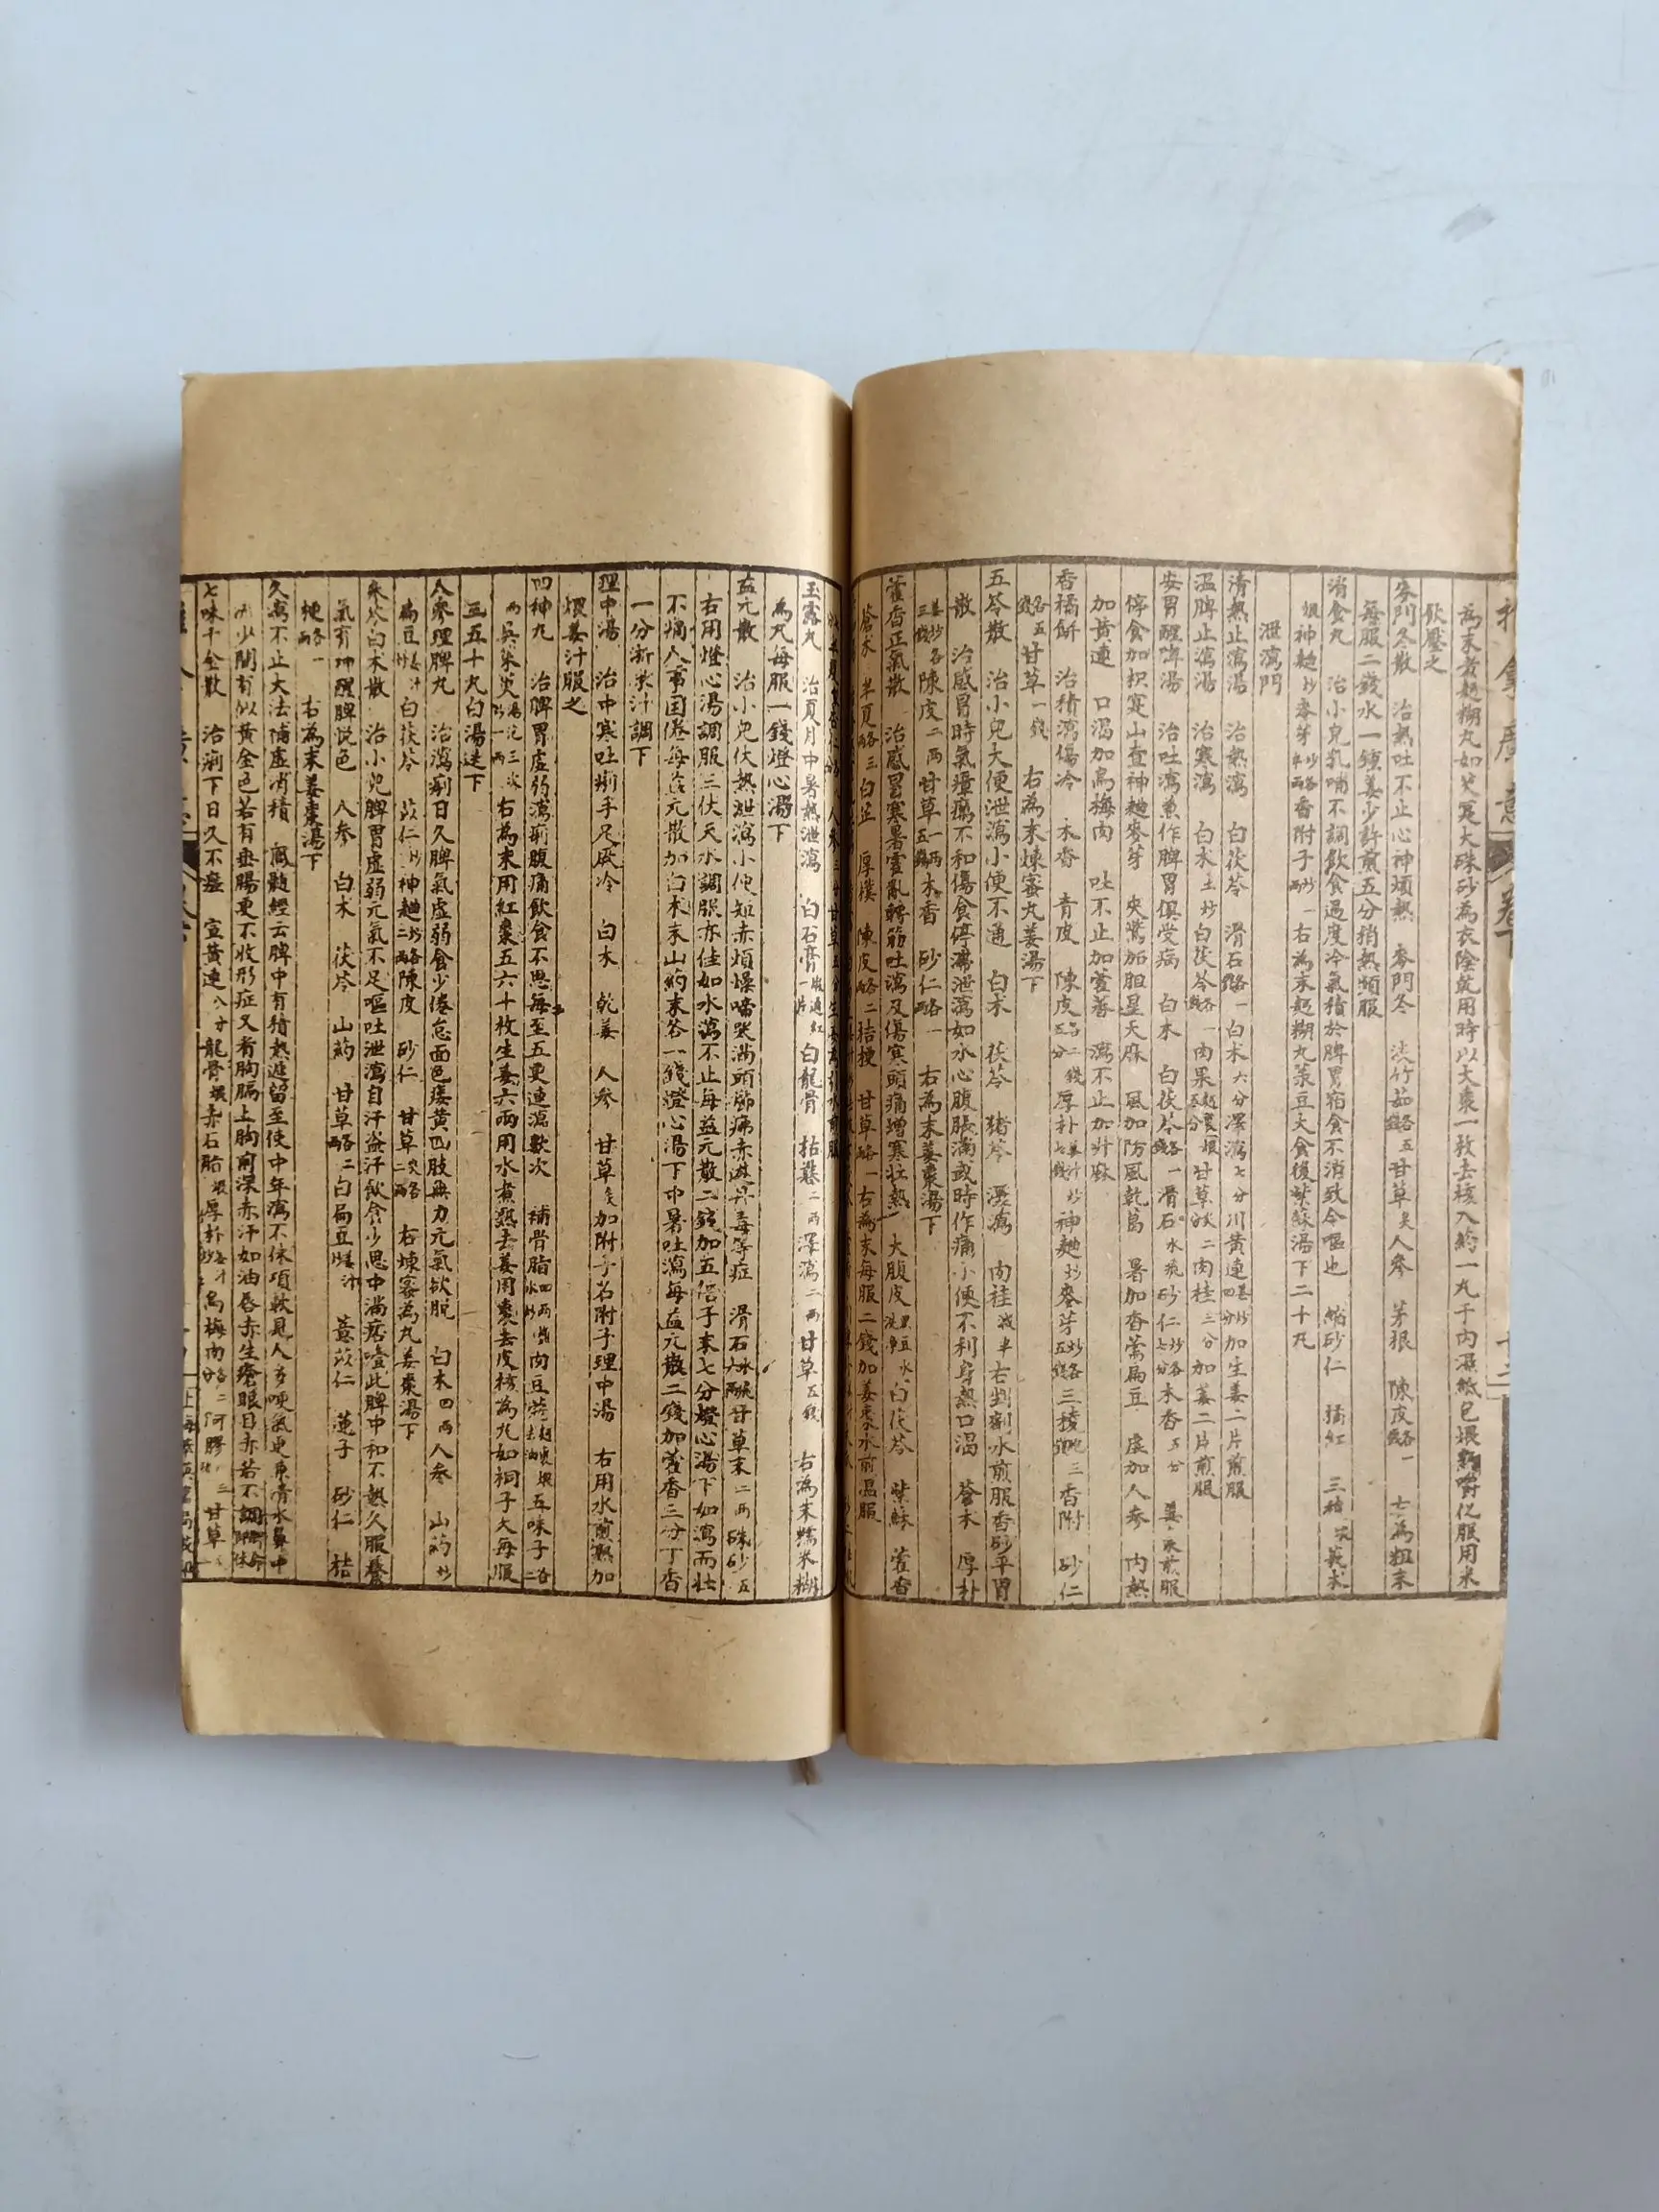 為末煮麫糊丸如芡寔大硃砂為衣陰乾用時以大棗一枚去核入藥一丸于內濕紙包煨熟嚼化服用米
飲壓之
麥門冬散　治熱吐不止心神煩熱　麥門冬　淡竹茹各五錢　甘草炙　人參　茅根　陳皮各一錢　右為粗末
每服二錢水一鍾姜少許煎五分稍熱頻服
消食丸　治小兒乳哺不調飲食過度冷氣積於脾胃宿食不消致令嘔也　縮砂仁　橘紅　三稜　莪朮
煨神麯炒麥芽炒各半兩香附子炒一兩右為末麫糊丸菉豆大食後紫蘇湯下二十丸
泄瀉門
清熱止瀉湯　治熱瀉　白茯苓　滑石各一錢　白朮六分澤瀉七分川黃連姜炒四分加生姜二片煎服
溫脾止瀉湯　治寒瀉　白朮土炒白茯苓各一錢肉果麫裹煨五分甘草炙二肉桂三分加姜二片煎服
安胃醒脾湯　治吐瀉兼作脾胃俱受病　白朮　白茯苓各一錢滑石水飛砂仁炒各七分木香五分　姜水煎服
停食加枳寔山查神麯麥芽　夾驚加胆星天麻　風加防風乾葛　暑加香薷扁豆　虛加人參　內熱
加黃連　口渴加烏梅肉　吐不止加藿香　瀉不止加升麻
香橘餅　治積瀉傷冷　木香　青皮　陳皮各二錢五分厚朴姜汁炒七錢神麯炒麥芽炒各五錢三稜三香附　砂仁
各五錢甘草一錢　右為末煉蜜丸姜湯下
五苓散　治小兒大便泄瀉小便不通　白朮　茯苓　猪苓　澤瀉　肉桂減半右剉劑水煎服香砂平胃
散　治感冒時氣瘴癘不和傷食停滯泄瀉如水心腹脹滿或時作痛小便不利身熱口渴　蒼朮　厚朴
姜炒各三錢陳皮二兩甘草一兩五錢木香　砂仁各一兩　右為末姜棗湯下
藿香正氣散　治感冒寒暑霍亂轉筋吐瀉及傷寒頭痛增寒壯熱　大腹皮黑豆水洗白茯苓　紫蘇　藿香
蒼朮　半夏各三兩白芷　厚樸　陳皮各二兩桔梗　甘草各一兩右為末每服二錢加姜棗水煎溫服
玉露丸　治夏月中暑熱泄瀉　白石膏　白龍骨　枯礬二兩澤瀉二兩甘草五錢　右為末糯米糊
為丸每服一錢燈心湯下
益元散　治小兒伏熱泄瀉小便短赤煩燥啼哭滿頭癤疿赤遊丹毒等症　滑石水飛六兩甘草末二兩硃砂五
右用燈心湯調服三伏天水調服亦佳如水瀉不止每益元散二錢加五倍子末七分燈心湯下如瀉而壯
不煩人事困倦每益元散加白朮末山藥末各一錢燈心湯下中暑吐瀉每益元散二錢加藿香三分丁香
一分淅米汁調下
理中湯　治中寒吐痢手足厥冷　白朮　乾姜　人參　甘草炙加附子名附子理中湯　右用水煎熟加
煨姜汁服之
四神丸　治脾胃虛弱瀉痢腹痛飲食不思每至五更連瀉數次　補骨脂四兩水炒肉豆蔻麫裹煨去油五味子各二
兩吳茱萸湯泡三次炒一兩右為末用紅棗五六十枚生姜六兩用水煮熟去姜用棗去皮核為丸如桐子大每服
三五十丸白湯送下
人參理脾丸　治瀉痢日久脾氣虛弱食少倦怠面色痿黃四肢無力元氣欲脫　白朮四兩人參　山藥炒
扁豆姜汁炒　白茯苓　苡仁炒神麯炒各二兩陳皮　砂仁　甘草炙各二兩　右煉蜜為丸姜棗湯下
參苓白朮散　治小兒脾胃虛弱元氣不足嘔吐泄瀉自汗盜汗飲食少思中滿痞噎此脾中和不熱久服養
氣育神醒脾悅色　人參　白朮　茯苓　山藥　甘草各二兩白扁豆姜汁炒　薏苡仁　蓮子　砂仁　桔
梗各一兩　右為末姜棗湯下
久瀉不止大法補虛消積　風髓經云脾中有積熱遲留至使中年瀉不休項軟見人多哽氣更兼清水鼻中
少間有似黃金色若有垂腸更不收形症又看胸膈上胸前深赤汗如油唇赤生瘡眼目赤若不調臍命休
七味千金散　治痢下日久不瘥　宣黃連八分龍骨煨赤石脂煨厚朴姜汁炒烏梅肉各二分阿膠甘草一